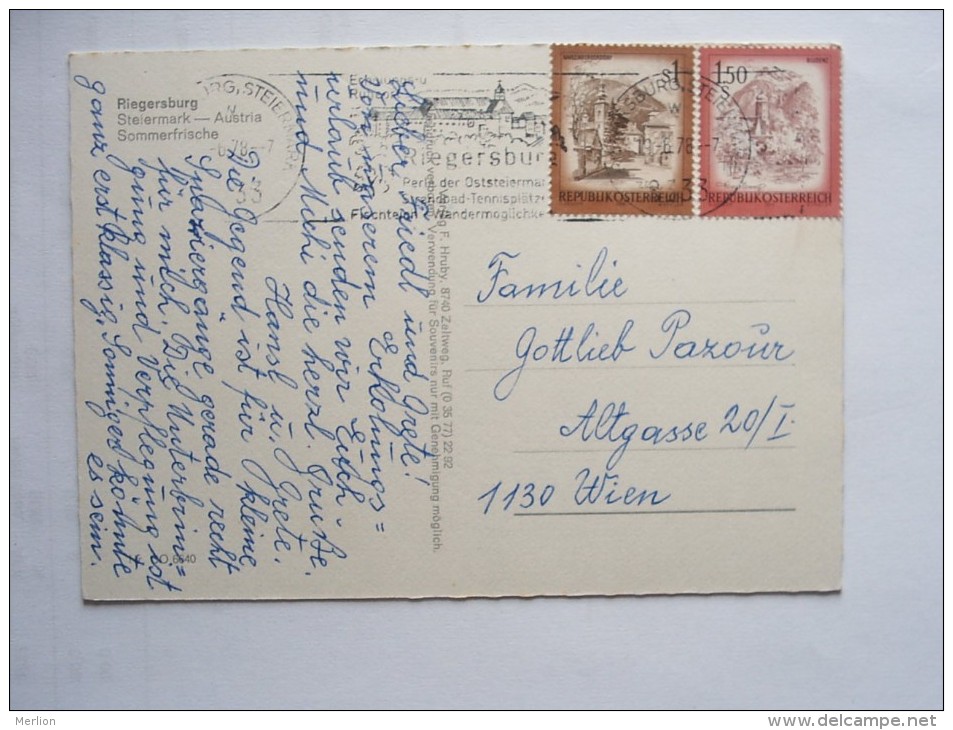 Riegersburg
Steiermark — Austria
Sommerfrische
BURG, STEIERMARK
-6.78--7
Erholungs- u
Riegersburg
Perle der Oststeiermark
Strandbad-Tennisplätze
Fischteich Wandermöglichke
S1
REPUBLIK ÖSTERREICH
1.50
S
BLUDENZ
REPUBLIK ÖSTERREICH
Lieber Friedl und Grete!
Von unserem Erholungs=
urlaub senden wir Euch
und Mehi die herzl. Grüße.
Hansl u. Grete.
Die Gegend ist für kleine
Spaziergänge gerade recht
für mich, Die Unterbrin=
gung und Verpflegung ist
ganz erstklassig, Sonniger könnte
es sein.
Verlag F. Hruby, 8740 Zeltweg, Ruf (0 35 77) 22 92
Nachdruck verboten. Verwendung für Souvenirs nur mit Genehmigung möglich.
O 6640
Familie
Gottlieb Pazour
Altgasse 20/I.
1130 Wien
Merlion
www.delcampe.net